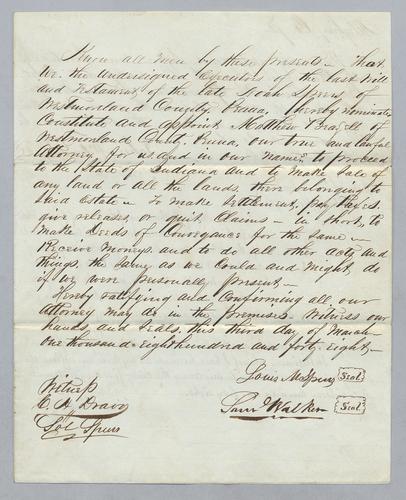 Know all men by these presents – That
We the undersigned Executors of the last Will
and Testament, of the late Noah Speers, of
Westmorland County, Penna, hereby nominate
Constitute and appoint Matthew Brazill of
Westmorland County, Penna, our true and lawful
Attorney for us, and in our names to proceed
to the State of Indiana and to make Sale of
any land or all the lands, there belonging to
said Estate – To make settlement, pay taxes,
give releases, or quit, Claims – in short, to
make Deeds of Conveyance for the same –
Receive moneys, and to do all other acts and
things, the same as we could and might do
if we were personally present –
Hereby ratifying and Confirming all, our
Attorney may do in the premises. Witness our
hands, and Seals, this third day of March
one thousand eight hundred and forty eight, –
Louis M Speers Seal
Witness
E. A. Dravo Saml Walker Seal
Sol Speers